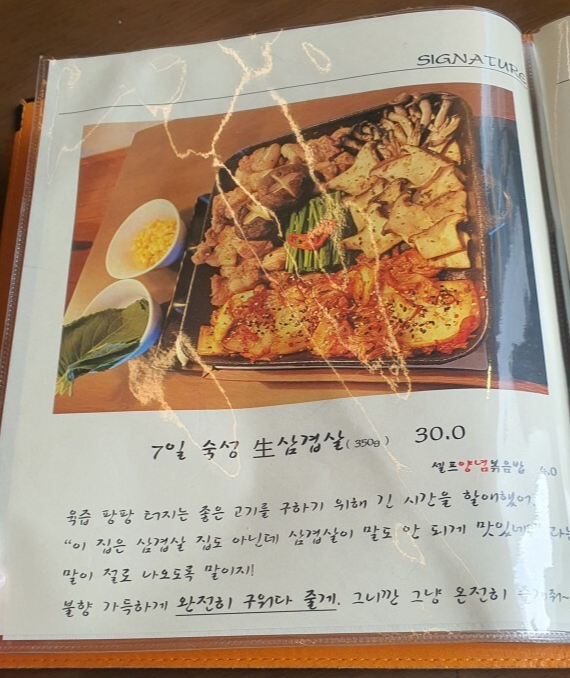 SIGNATURE
7일 숙성 生삼겹살(350g) 30.0
셀프양념볶음밥 4.0
육즙 팡팡 터지는 좋은 고기를 구하기 위해 긴 시간을 할애했어
“이 집은 삼겹살 집도 아닌데 삼겹살이 말도 안 되게 맛있네
말이 절로 나오도록 말이지!
불향 가득하게 완전히 구워다 줄게. 그니깐 그냥 온전히